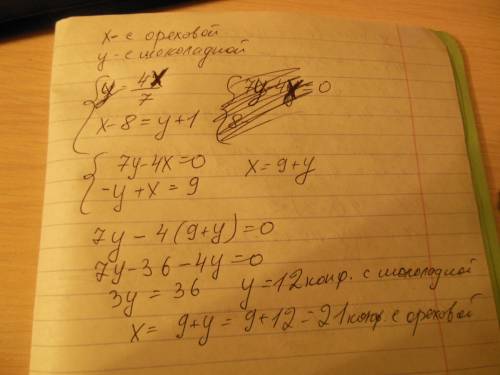 x - с ореховой
y - с шоколадной
y = 4x/7
x - 8 = y + 1
7y - 4x = 0
-y + x = 9
x = 9 + y
7y - 4(9+y) = 0
7y - 36 - 4y = 0
3y = 36 y = 12 конф. с шоколадной
x = 9 + y = 9 + 12 = 21 конф. с ореховой